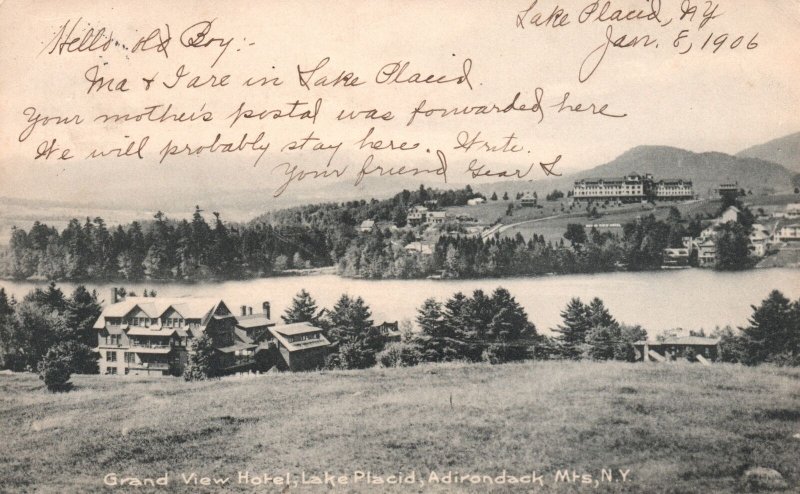 Lake Placid, NY
Jan. 8, 1906
Hello old Boy:-
Ma & I are in Lake Placid.
Your mother's postal was forwarded here
We will probably stay here. Write.
Your friend,
Grand View Hotel, Lake Placid, Adirondack Mts, N.Y.